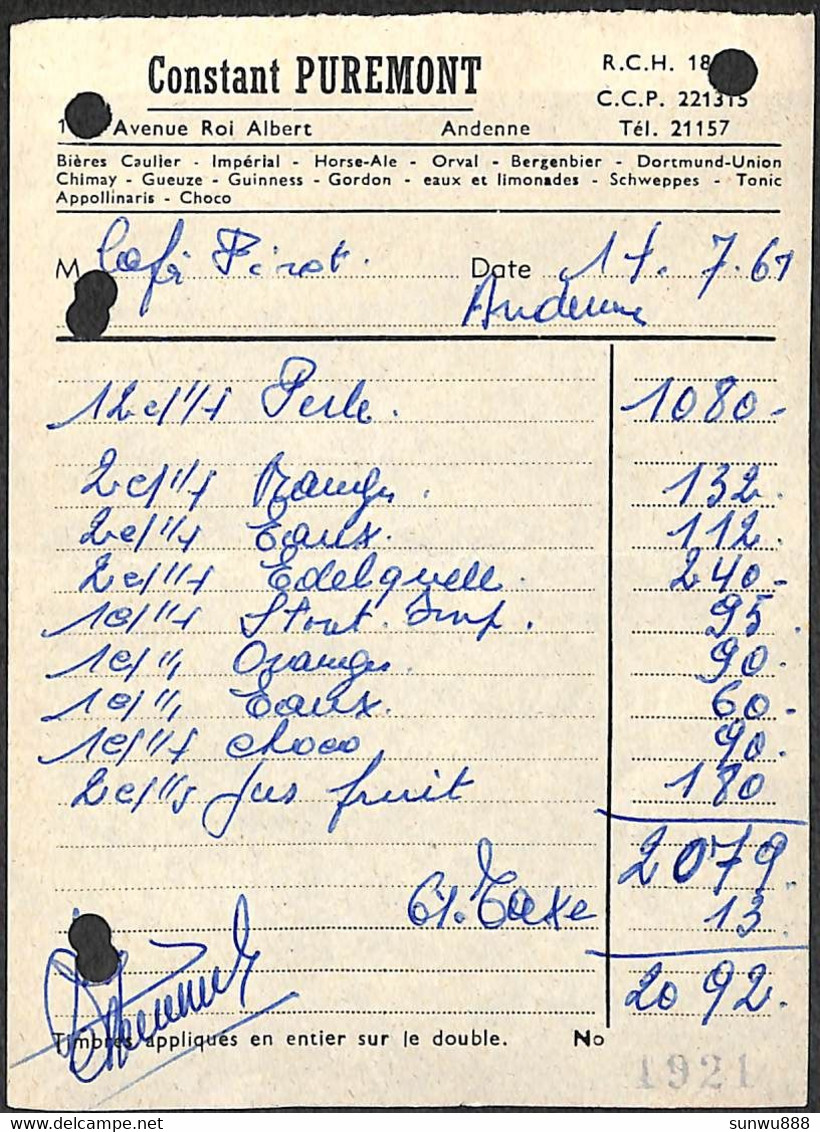 Constant PUREMONT
R.C.H. 18
C.C.P. 221315
1 Avenue Roi Albert Andenne Tél. 21157
Bières Caulier - Impérial - Horse-Ale - Orval - Bergenbier - Dortmund-Union
Chimay - Gueuze - Guinness - Gordon - eaux et limonades - Schweppes - Tonic
Appollinaris - Choco
M Café Pirot. Date 17. 7. 61
Andenne
12 c/ Perle. 1080-
2 c/ Orange. 132.
2 c/ Eaux. 112.
2 c/ Edelquelle. 240-
1 c/ Stout. Imp. 95.
1 c/ Oranges. 90.
1 c/ Eaux. 60-
1 c/ Choco 90.
2 c/ Jus fruit 180
2079.
Taxe 13.
2092.
Timbres appliqués en entier sur le double. No
1921
sunwu888